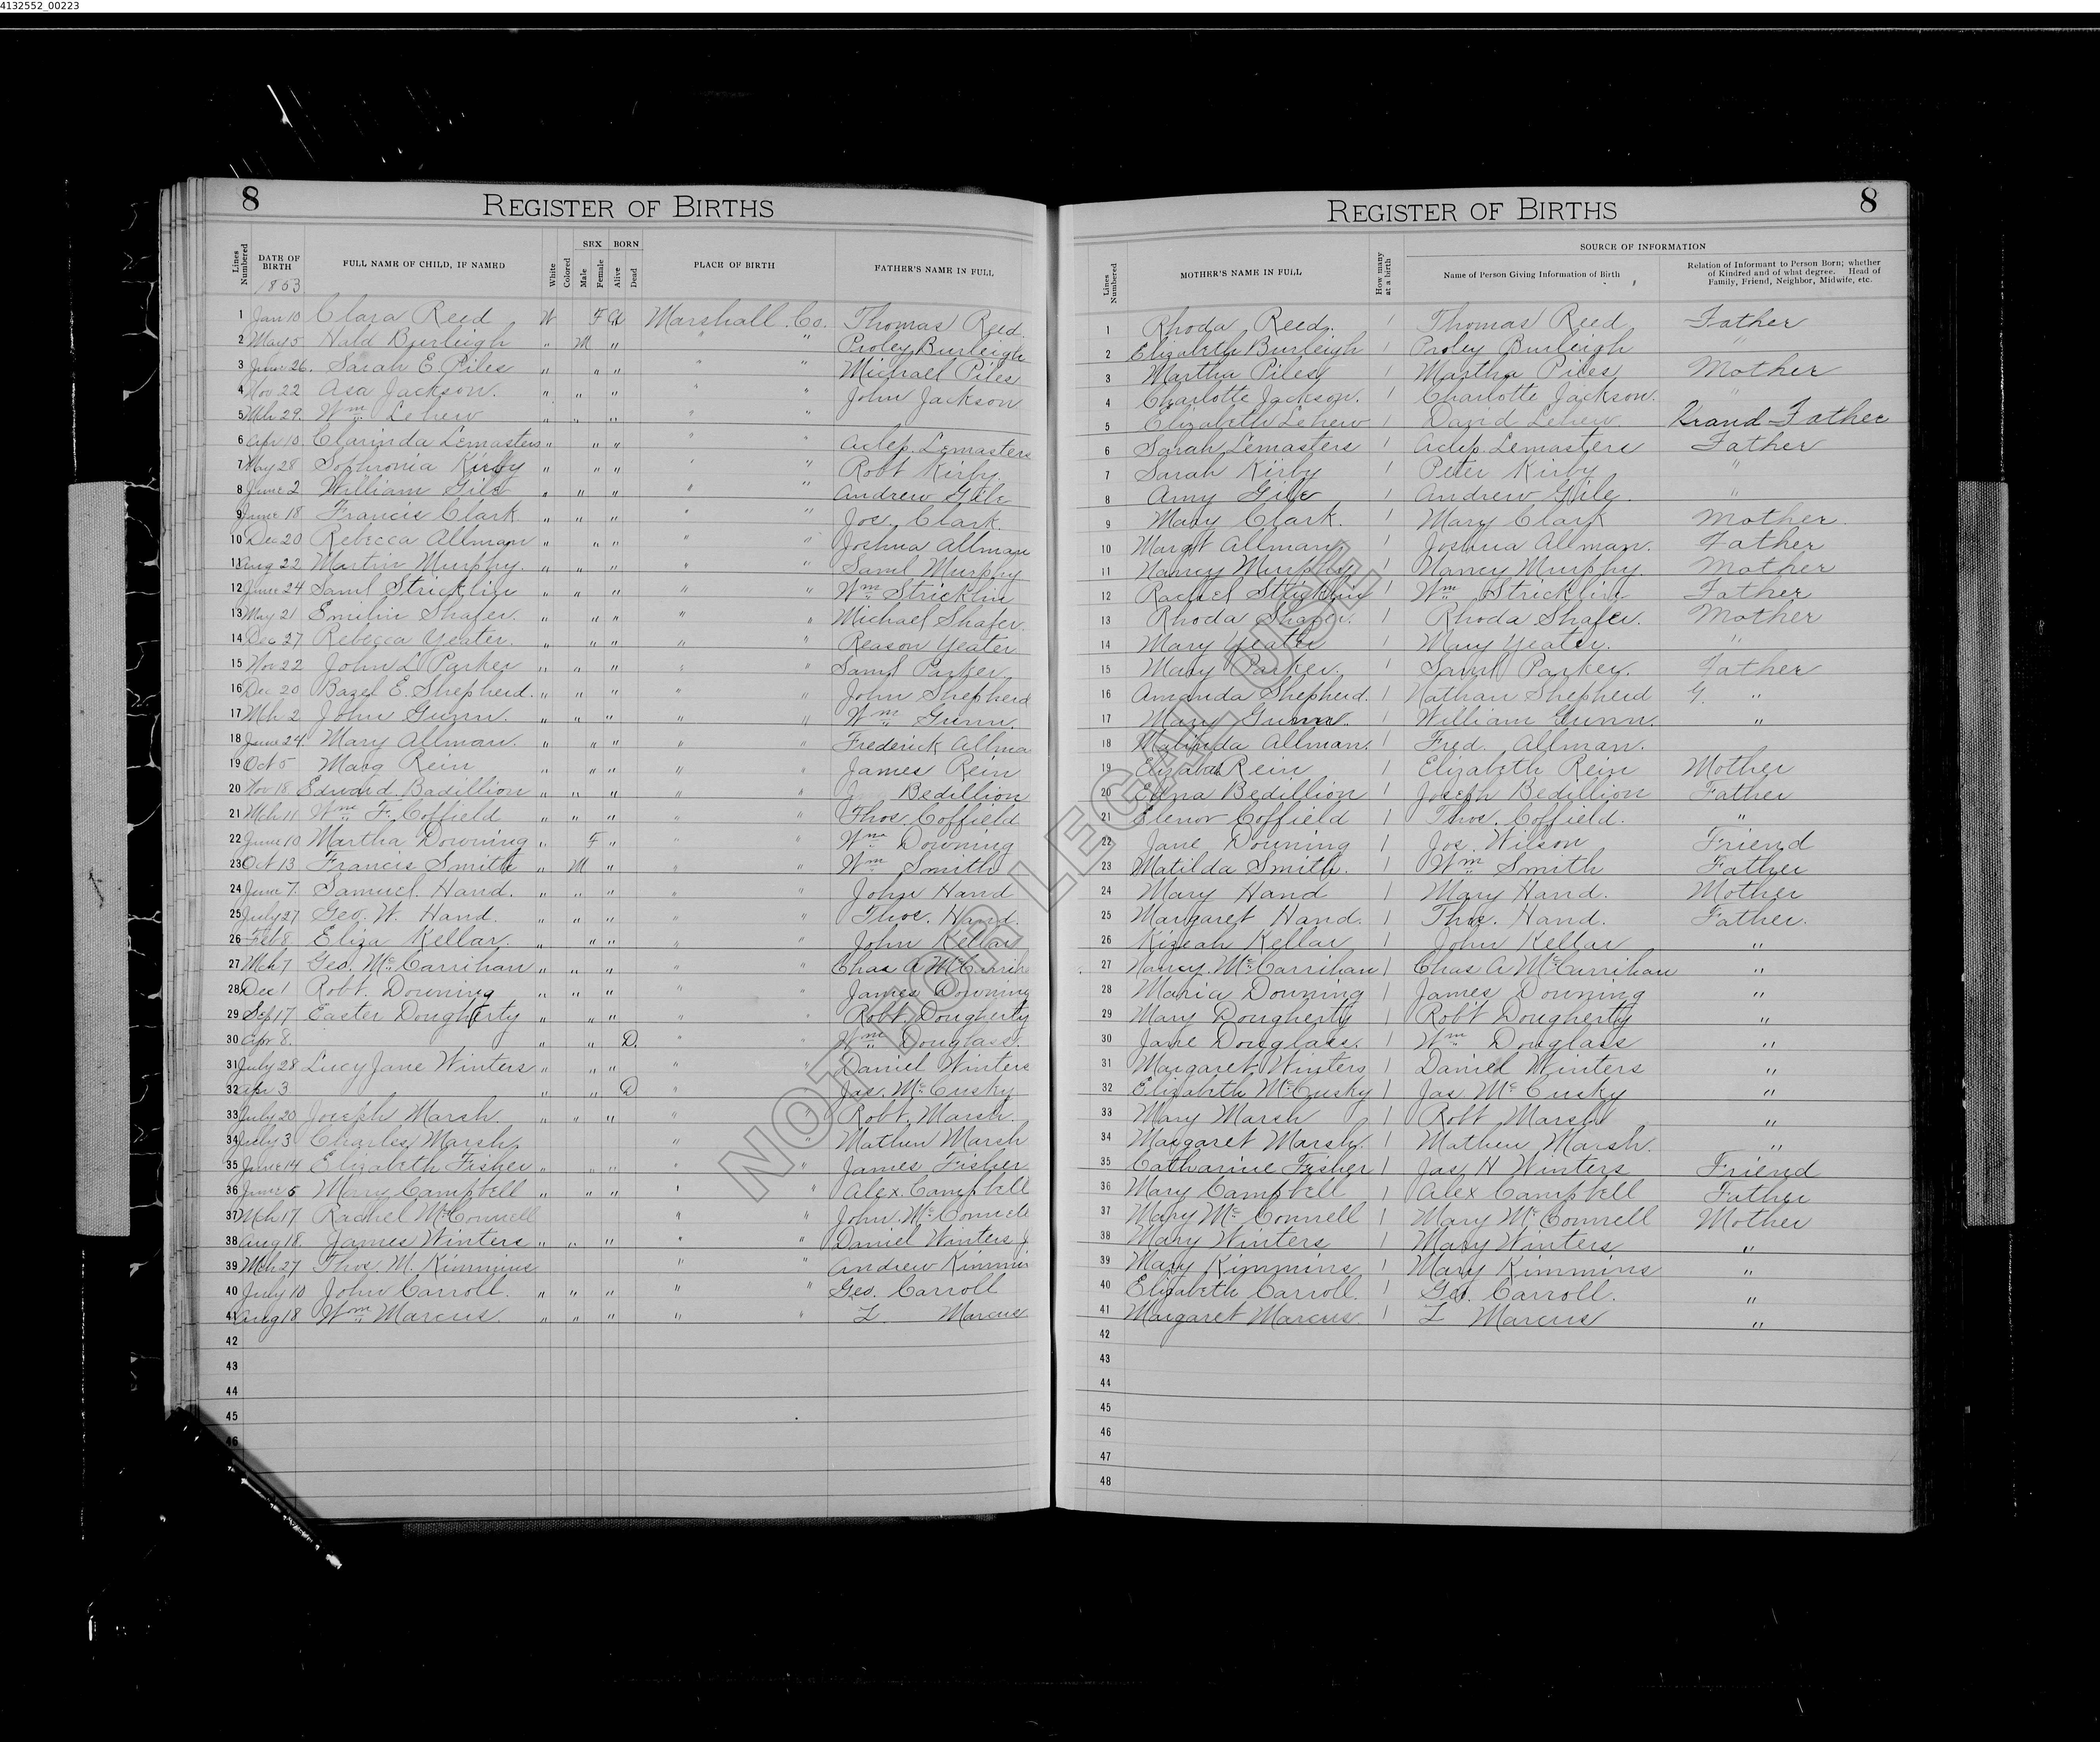 4132552_00223
8 REGISTER OF BIRTHS
Lines Numbered DATE OF BIRTH FULL NAME OF CHILD, IF NAMED White Colored SEX Male Female BORN Alive Dead PLACE OF BIRTH FATHER'S NAME IN FULL
1853
1 Jan 10 Clara Reed W F A Marshall Co. Thomas Reed
2 May 5 Hald Burleigh " M " " " Proley Burleigh
3 June 26. Sarah E. Piles " " " " " Michael Piles
4 Nov 22 Asa Jackson. " " " " " John Jackson
5 Mch 29. Wm Lehew " " " " "
6 Apr 10. Clarinda Lemasters " " " " " Aclep. Lemasters
7 May 28 Sophronia Kirby " " " " " Robt Kirby
8 June 2 William Gile " " " " " Andrew Gile
9 June 18 Francis Clark. " " " " " Jos. Clark.
10 Dec 20 Rebecca Allman " " " " " Joshua Allman
11 Aug 22 Martin Murphy. " " " " " Saml Murphy
12 June 24 Saml Stricklin " " " " " Wm Stricklin
13 May 21 Emilin Shafer. " " " " " Michael Shafer.
14 Dec 27 Rebecca Yeater. " " " " " Reason Yeater
15 Nov 22 John L Parker " " " " " Saml Parker.
16 Dec 20 Bazel E. Shepherd. " " " " " John Shepherd
17 Mch 2 John Gunn. " " " " " Wm Gunn.
18 June 24. Mary Allman. " " " " " Frederick Allma
19 Oct 5 Marg Rein " " " " " James Rein
20 Nov 18 Edward Badillion " " " " " Bedillion
21 Mch 11 Wm F. Coffield " " " " " Thos. Coffield
22 June 10 Martha Downing " F " " " Wm Downing
23 Oct 13 Francis Smith " M " " " Wm Smith
24 June 7. Samuel Hand. " " " " " John Hand
25 July 27 Geo. W. Hand. " " " " " Thos. Hand.
26 Feb 8 Eliza Kellar. " " " " " John Kellar
27 Mch 7 Geo. McCarrihan " " " " " Chas A McCarrih
28 Dec 1 Robt. Downing " " " " " James Downing
29 Sep 17 Easter Dougherty " " " " " Robt. Dougherty
30 Apr 8. " " D. " " Wm Douglass.
31 July 28 Lucy Jane Winters " " " " " Daniel Winters
32 Apr 3 " " D " " Jas. McCusky
33 July 20 Joseph Marsh. " " " " " Robt. Marsh.
34 July 3 Charles Marsh. " " Mathew Marsh
35 June 14 Elizabeth Fisher " " " " " James Fisher
36 June 5 Mary Campbell " " " " " Alex. Campbell
37 Mch 17 Rachel McConnell " " John. McConnell
38 Aug 18. James Winters " " " " " Daniel Winters J
39 Mch 27 Thos. M. Kimmins " " Andrew Kimmin
40 July 10 John Carroll. " " " " " Geo. Carroll
41 Aug 18 Wm Marcus. " " " " " Z Marcus
42
43
44
45
46
REGISTER OF BIRTHS 8
Lines Numbered MOTHER'S NAME IN FULL How many at a birth SOURCE OF INFORMATION
Name of Person Giving Information of Birth
Relation of Informant to Person Born; whether of Kindred and of what degree. Head of Family, Friend, Neighbor, Midwife, etc.
1 Rhoda Reed. 1 Thomas Reed Father
2 Elizabeth Burleigh 1 Proley Burleigh "
3 Martha Piles 1 Martha Piles Mother
4 Charlotte Jackson. 1 Charlotte Jackson. "
5 Elizabeth Lehew 1 David Lehew. Grand Father
6 Sarah Lemasters 1 Aclep. Lemasters Father
7 Sarah Kirby 1 Peter Kirby "
8 Amy Gile 1 Andrew Gile. "
9 Mary Clark. 1 Mary Clark Mother.
10 Margt Allman 1 Joshua Allman. Father
11 Nancy Murphy 1 Nancy Murphy. Mother
12 Rachel Stricklin 1 Wm Stricklin Father
13 Rhoda Shafer. 1 Rhoda Shafer. Mother
14 Mary Yeater 1 Mary Yeater. "
15 Mary Parker. 1 Saml Parker. Father
16 Amanda Shepherd. 1 Nathan Shepherd G. "
17 Mary Gunn. 1 William Gunn. "
18 Malinda Allman. 1 Fred. Allman.
19 Elizabeth Rein 1 Elizabeth Rein Mother
20 Edna Bedillion 1 Joseph Bedillion Father
21 Elenor Coffield 1 Thos. Coffield. "
22 Jane Downing 1 Jos. Wilson Friend
23 Matilda Smith. 1 Wm Smith Father
24 Mary Hand 1 Mary Hand. Mother
25 Margaret Hand. 1 Thos. Hand. Father.
26 Kizeah Kellar 1 John Kellar "
27 Nancy. McCarrihan 1 Chas A McCarrihan "
28 Maria Downing 1 James Downing "
29 Mary Dougherty 1 Robt Dougherty "
30 Jane Douglass. 1 Wm Douglass "
31 Margaret Winters 1 Daniel Winters "
32 Elizabeth McCusky 1 Jas McCusky "
33 Mary Marsh 1 Robt Marsh "
34 Margaret Marsh. 1 Mathew Marsh. "
35 Catharine Fisher 1 Jas H Winters Friend
36 Mary Campbell 1 Alex Campbell Father
37 Mary McConnell 1 Mary McConnell Mother
38 Mary Winters 1 Mary Winters "
39 Mary Kimmins 1 Mary Kimmins "
40 Elizabeth Carroll. 1 Geo. Carroll. "
41 Margaret Marcus. 1 Z Marcus "
42
43
44
45
46
47
48
NOT FOR LEGAL USE